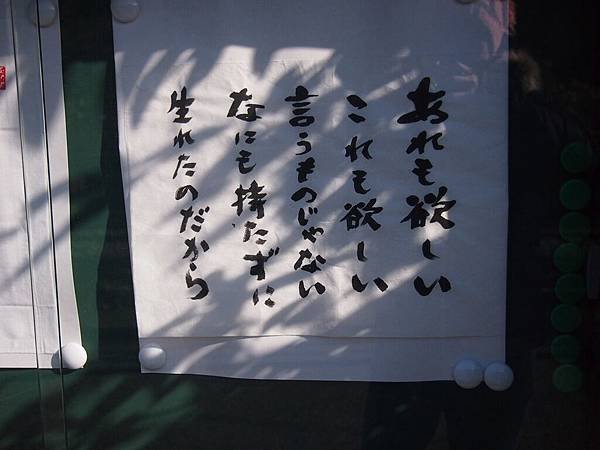 あれも欲しい
これも欲しい
言うものじゃない
なにも持たずに
生れたのだから